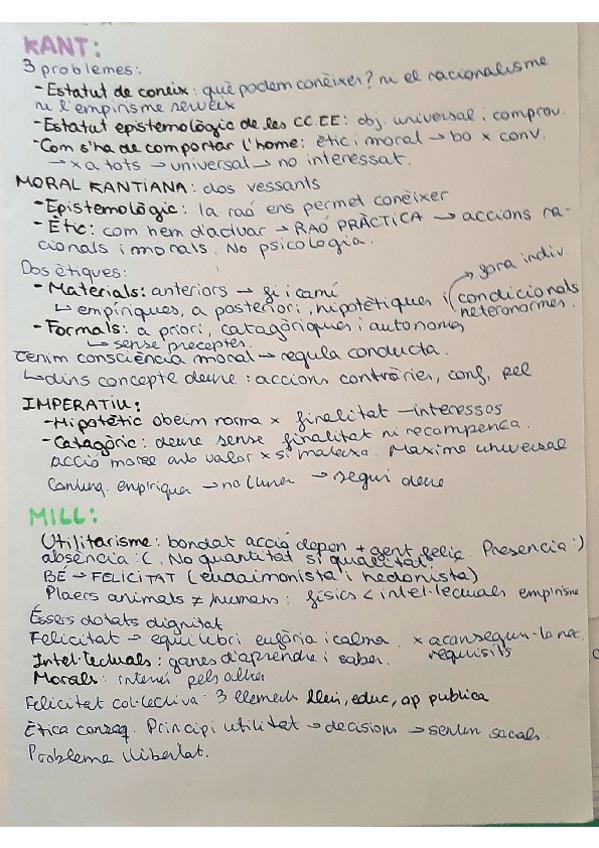 KANT:
3 problemes:
- Estatut de coneix: què podem conèixer? ni el racionalisme
ni l'empirisme serveix
- Estatut epistemològic de les CC.EE: obj. universal i comprov.
- Com s'ha de comportar l'home: ètic i moral → bo x conv.
→ x a tots → universal → no interessat.
MORAL KANTIANA: dos vessants
- Epistemològic: la raó ens permet conèixer
- Ètic: com hem d'actuar → RAÓ PRÀCTICA → accions ra-
cionals i morals. No psicologia.
Dos ètiques:
→ fora indiv.
- Materials: anteriors → fi i camí
↳ empíriques, a posteriori, hipotètiques i (condicionals
heteronormes.
- Formals: a priori, catagòriques i autonomes
↳ sense preceptes.
Tenim consciència moral → regula conducta.
↳ dins concepte deure: accions contràries, conf, pel
IMPERATIU:
- Hipotètic obeim norma x finalitat - interessos
- Catagòric: deure sense finalitat ni recompenca.
acció moral amb valor x si mateixa. Maxima universal
empirique → no lliure → seguir deure
MILL:
Utilitarisme: bondat acció depen + gent feliç. Presencia :)
absència :(. No quantitat si qualitat.
BÉ → FELICITAT (eudaimonista i hedonista)
Plaers animals ≠ humans: físics < intel·lectuals empirisme
Éssers dotats dignitat
Felicitat → equilibri eufòria i calma. x aconseguir-la nec.
requisits
Intel·lectuals: ganes d'aprendre i saber.
Morals: interes pels altres
Felicitat col·lectiva: 3 elements llei, educ, op publica
Ètica conseq. Principi utilitat → decisions → socials.
Problema llibertat.